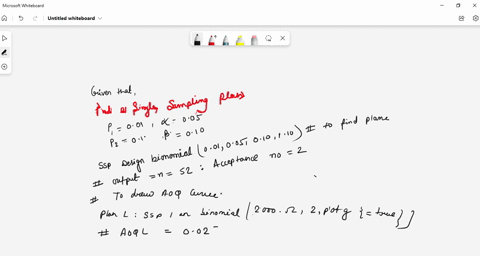 Microsoft Whiteboard
Untitled whiteboard
Given that,
Find a Single Sampling Plan
P₁ = 0.01, α = 0.05
P₂ = 0.1, β = 0.10
SSP Design binomial (0.01, 0.05, 0.10, 0.10) # to find plane
# output = n = 52 : Acceptance no = 2
# To draw AOQ Curve.
Plan L : SSP, an binomial (2000. 52, 2, plotg {= true})]
# AOQL = 0.02